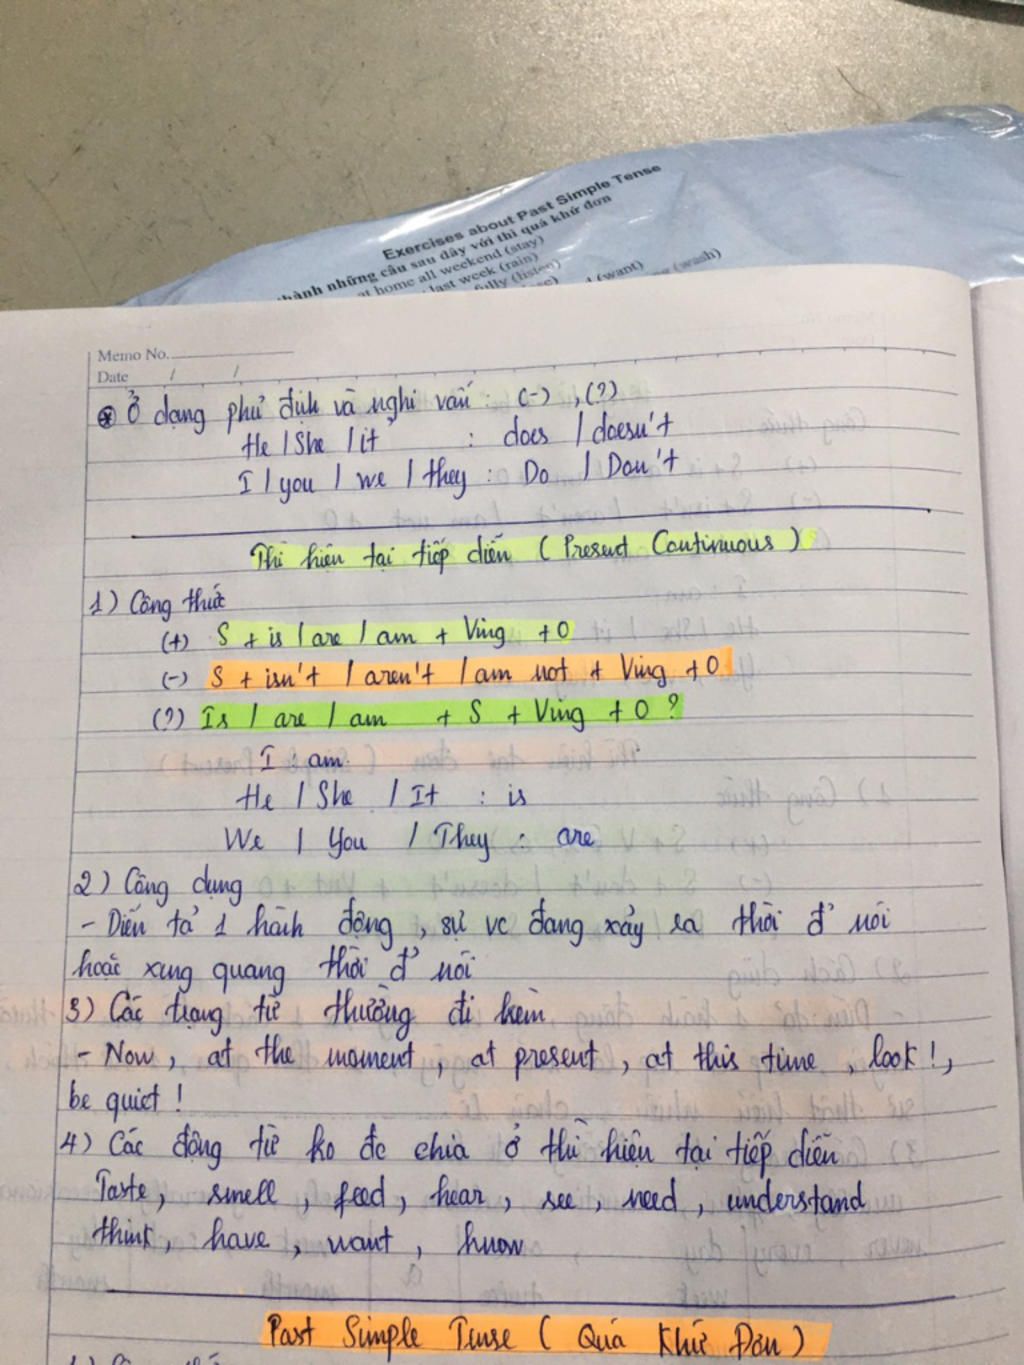 Exercises about Past Simple Tense
thành những câu sau đây với thì quá khứ đơn
at home all weekend (stay)
last week (rain)
fully (listen)
(want)
(wash)
Memo No.
Date / /
Ở dạng phủ định và nghi vấn : (-) , (?)
He / She / it : does / doesn't
I / you / we / they : Do / Don't
Thì hiện tại tiếp diễn ( Present Continuous )
1) Công thức
(+) S + is / are / am + Ving + O
(-) S + isn't / aren't / am not + Ving + O
(?) Is / are / am + S + Ving + O ?
I : am.
He / She / It : is
We / You / They : are
2) Công dụng
- Diễn tả 1 hành động , sự vc đang xảy ra thời đ' nói
hoặc xung quang thời đ' nói
3) Các trạng từ thường đi kèm
- Now , at the moment , at present , at this time , look ! ,
be quiet !
4) Các động từ ko đc chia ở thì hiện tại tiếp diễn
Taste , smell , feed , hear , see , need , understand
think , have , want , know
Past Simple Tense ( Quá Khứ Đơn )